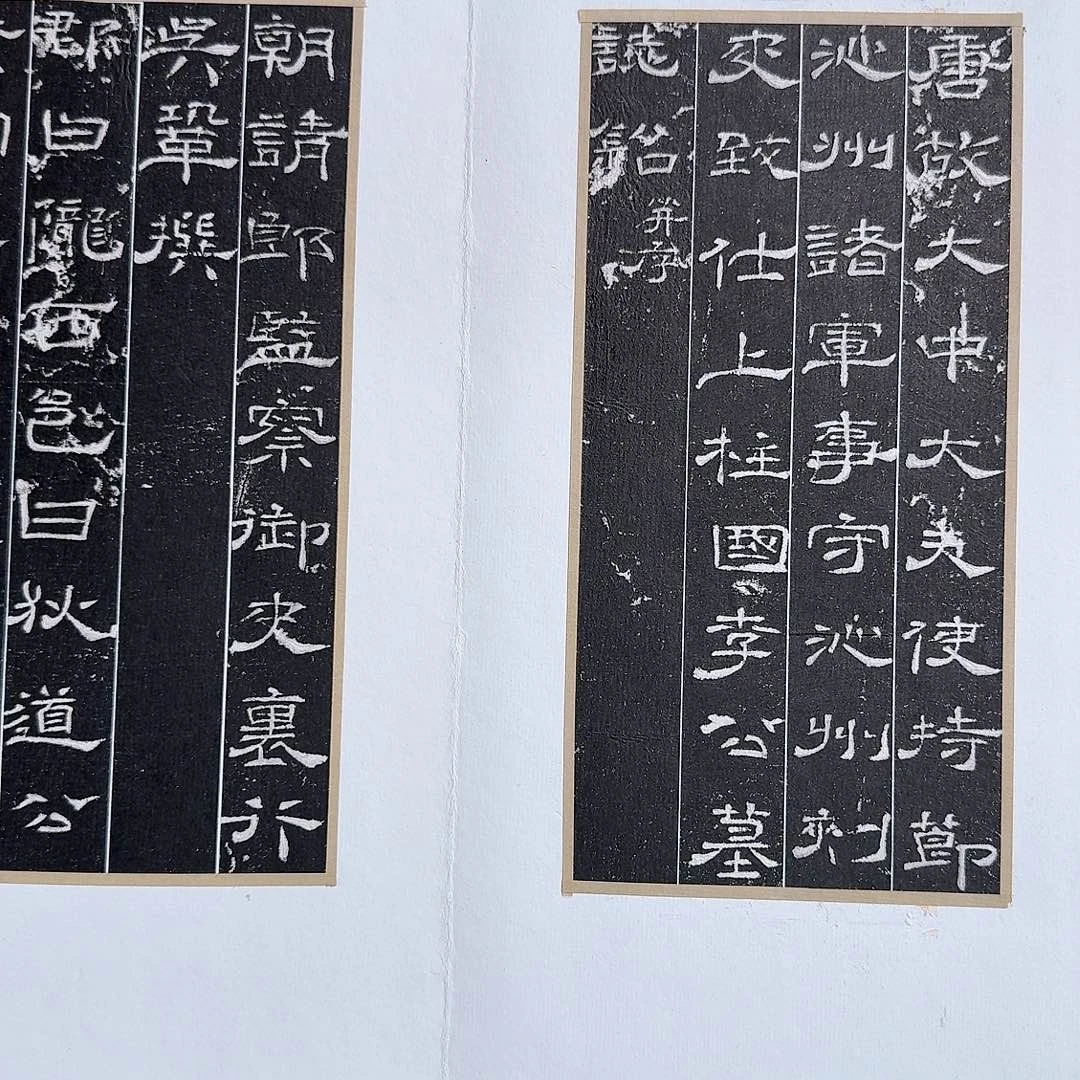 唐故大中大夫使持節
沁州諸軍事守沁州刺
史致仕上柱國李公墓
誌銘并序
朝請郎監察御史裏行
吳鞏撰
郡曰隴西邑曰狄道公